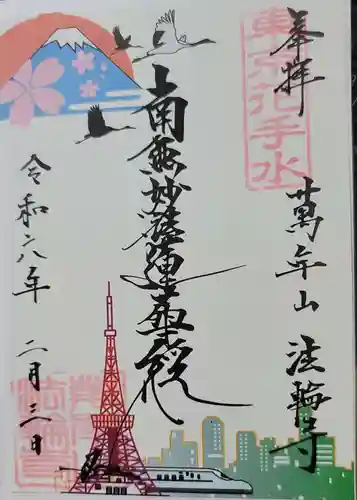 奉拝
東京花手水
萬年山 法輪寺
南無妙法蓮華経
令和六年 二月三日